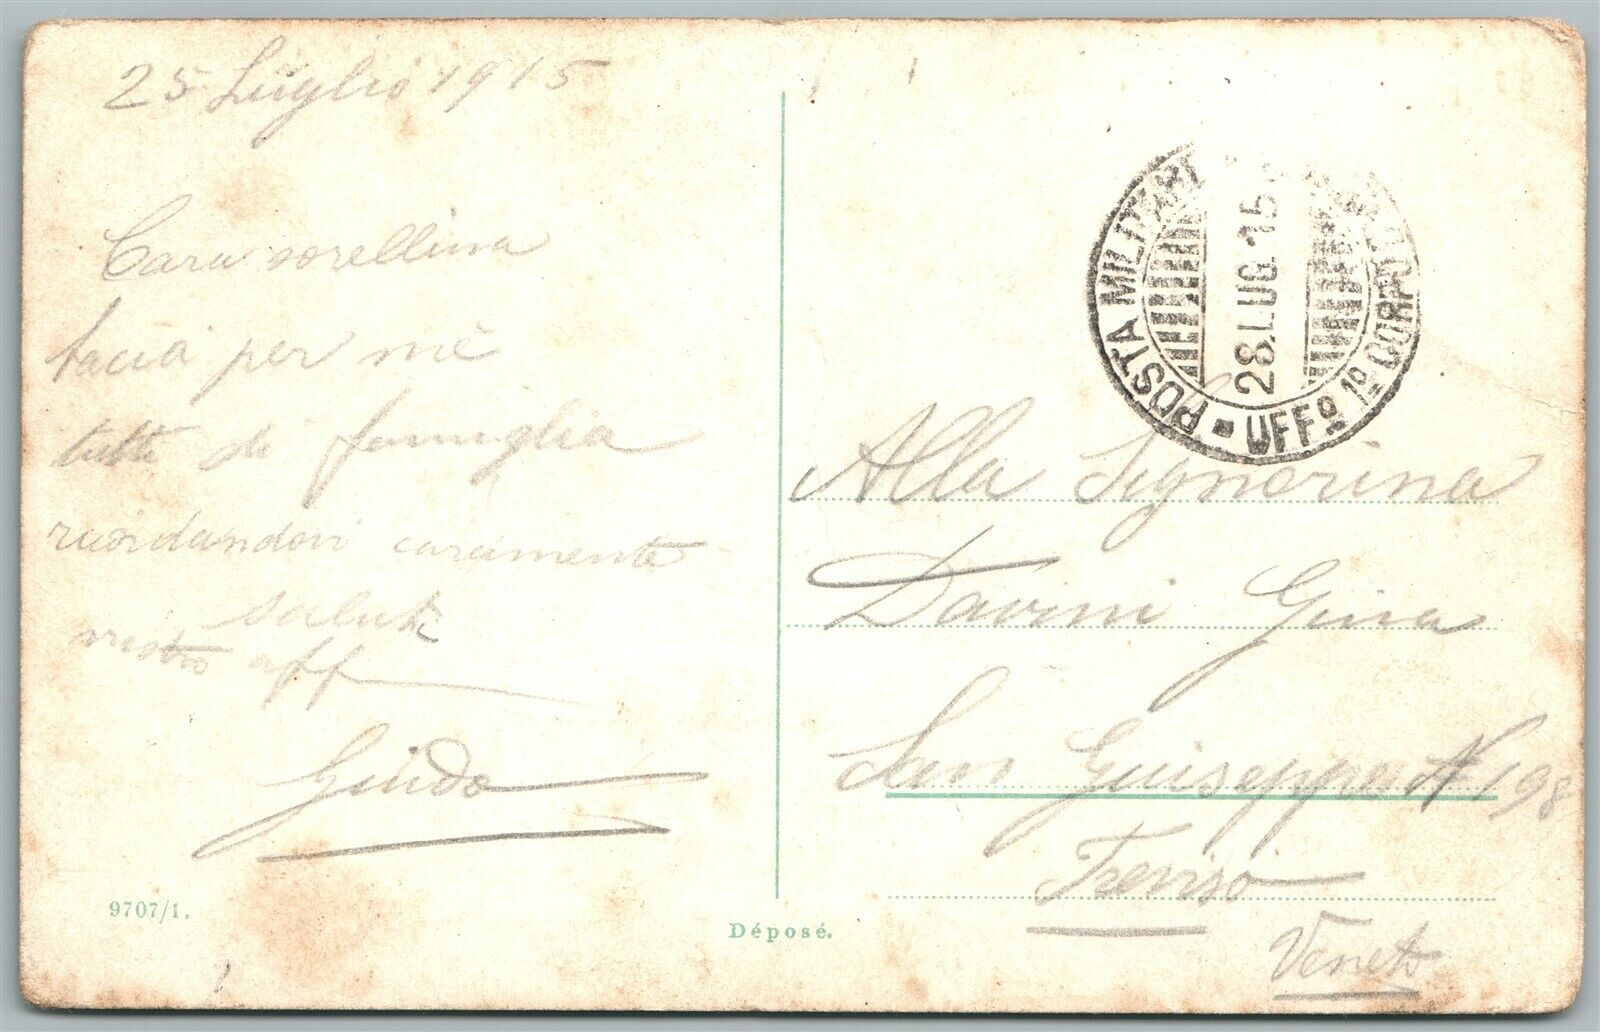 25 Luglio 1915
Cara sorellina
bacia per mè
tutti di famiglia
ricordandovi caramente
saluti
vostro aff
Guido
9707/1.
Déposé.
POSTA MILITARE
28.LUG.15
UFFº 1º CORPO
Alla Signorina
Davini Gina
San Guiseppe N 198
Treviso
Veneto